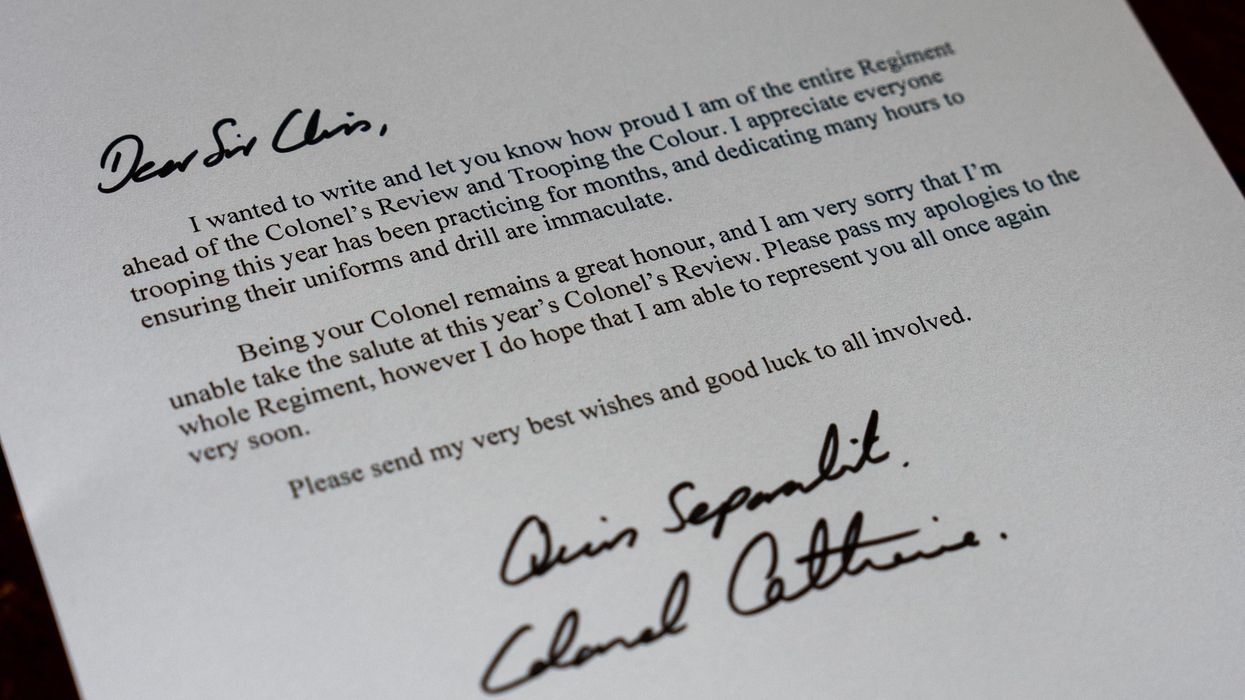 Dear Sir Chris,
I wanted to write and let you know how proud I am of the entire Regiment
ahead of the Colonel’s Review and Trooping the Colour. I appreciate everyone
trooping this year has been practicing for months, and dedicating many hours to
ensuring their uniforms and drill are immaculate.
Being your Colonel remains a great honour, and I am very sorry that I’m
unable take the salute at this year’s Colonel’s Review. Please pass my apologies to the
whole Regiment, however I do hope that I am able to represent you all once again
very soon.
Please send my very best wishes and good luck to all involved.
Quis Separabit.
Colonel Catherine.